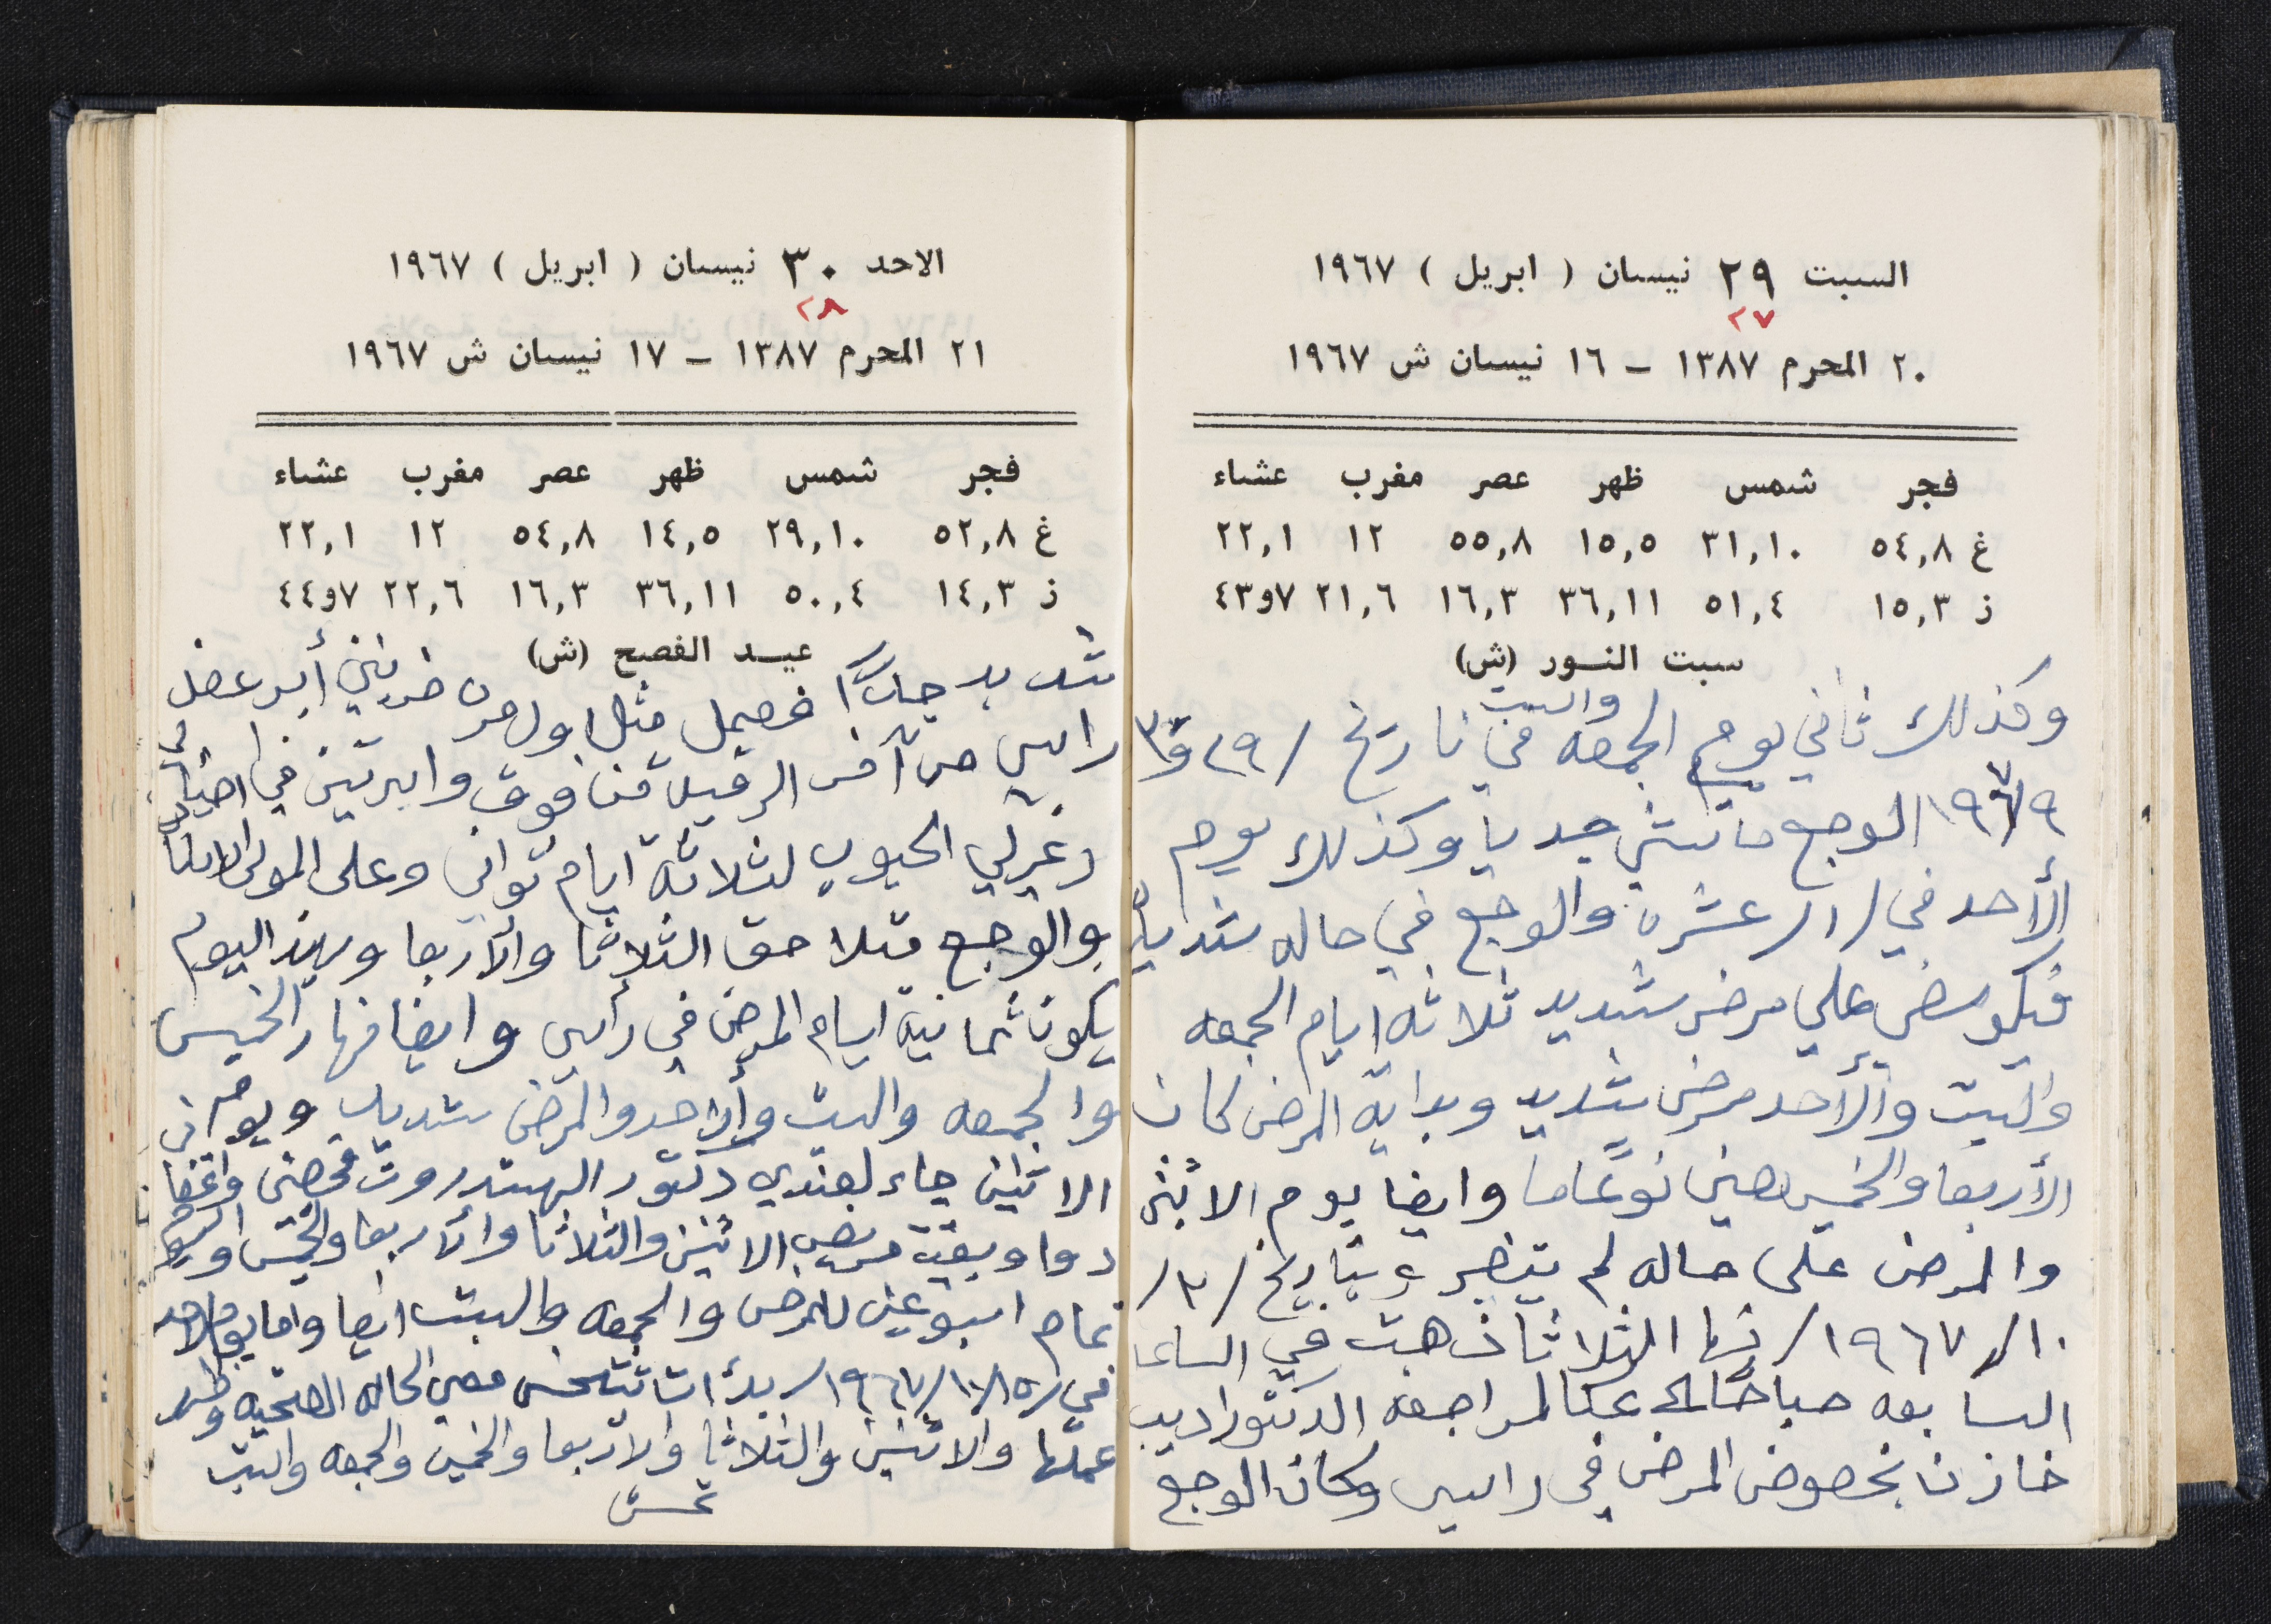 السبت ٢٩ نيسان ( ابريل ) ١٩٦٧
٢٧
٢٠ المحرم ١٣٨٧ - ١٦ نيسان ش ١٩٦٧
فجر شمس ظهر عصر مغرب عشاء
غ ٥٤,٨ ٣١,١٠ ١٥,٥ ٥٥,٨ ١٢ ٢٢,١
ذ ١٥,٣ ٥١,٤ ٣٦,١١ ١٦,٣ ٢١,٦ ٧و٤٣
سبت النور (ش)
والسبت
وكذلك ثاني يوم الجمعه في تاريخ /٢٩ و٣٠
١٩٦٧/٩ الوجع ماشي جديا وكذلك يوم
الأحد في /١/ عشره والوجع في حاله شديده
فيكو مضى علي مرض شديد ثلاثه ايام الجمعه
والسبت والأحد مرض شديد وبداية المرض كان
الأربعا والخميس هين نوعًا ما وايضا يوم الاثنين
والمرض على حاله لم يتغير وبتاريخ /٣/
١٠/١٩٦٧/ نها الثلاثا ذهبت في الساعا
السابعه صباحًا الى عكا لمراجعة الدكتور اديب
خازن بخصوص المرض في راسي وكان الوجع
الاحد ٣٠ نيسان ( ابريل ) ١٩٦٧
٢٨
٢١ المحرم ١٣٨٧ - ١٧ نيسان ش ١٩٦٧
فجر شمس ظهر عصر مغرب عشاء
غ ٥٢,٨ ٢٩,١٠ ١٤,٥ ٥٤,٨ ١٢ ٢٢,١
ذ ١٤,٣ ٥٠,٤ ٣٦,١١ ١٦,٣ ٢٢,٦ ٧و٤٤
عيد الفصح (ش)
شديد جدًا فعمل مثل اول مره ضربني أبر عضل
راسي من آخر الرقبه من فوق وابرتين في
وغيرلي الحبوب لثلاثة ايام تواني وعلى المولى الاتكال
والوجع متلاحق الثلاثا والأربعا وبهذا اليوم
يكون ثمانية ايام المرض في رأسي وايضا نهار الخميس
والجمعه والسبت والأحد والمرض شديد ويوم
الاثنين جاء لعندي دكتور الهستدروت فحصني واعطا
دوا وبقيت مريض الاثنين والثلاثا والأربعا والخميس
تمام اسبوعين للمرض والجمعه والسبت ايضا واما يوم الاحد
في /١٥/١٠/١٩٦٧/ بدأت تتحسن معي الحاله الصحيه
عملها والاثنين والثلاثا والاربعا والخميس والجمعه والسبت
تحسن